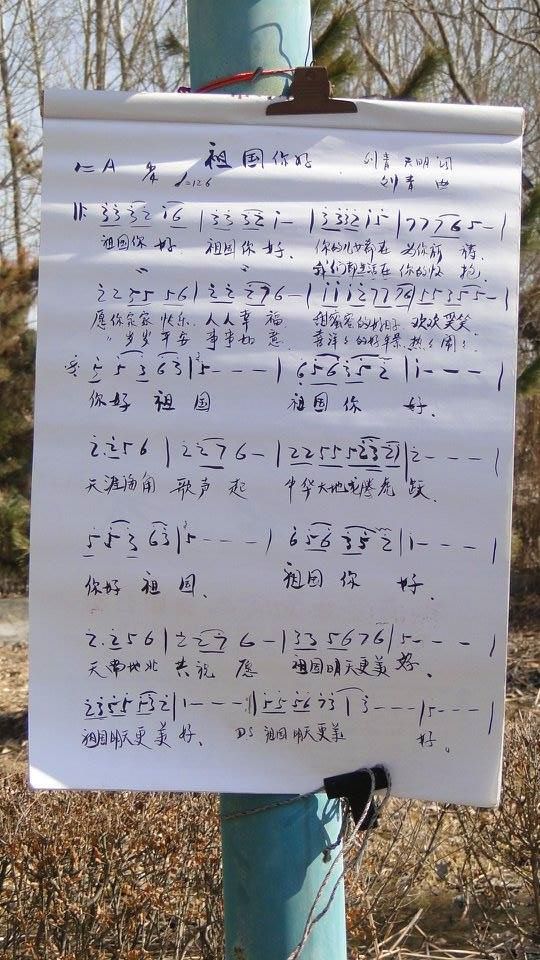 1=A 祖国你好 刘青 天明 词
♩=126 刘青 曲
祖国你好 祖国你好. 你的儿女都在 为你祈祷.
我们都生活在 你的怀抱.
2 2 5 5 5 6 | 2 2 2 7 6 - | 1 1 1 2 7 7 7 6 | 5 5 3 5 5 - |
愿你家家快乐. 人人幸福. 甜蜜蜜的好日子 欢欢笑笑
岁岁平安 事事如意. 喜洋洋的好年景
5 5 3 6 3 | 5 - - - - | 6 5 6 3 5 2 | 1 - - - |
你好祖国 祖国你好.
2. 2 5 6 | 2 2 7 6 - | 2 2 5 5 5 2 3 2 1 | 2 - - - |
天涯海角 歌声起 中华大地龙腾虎跃
5 5 3 6 3 | 5 - - - - | 6 5 6 3 5 2 | 1 - - - |
你好祖国. 祖国你好.
2. 2 5 6 | 2 2 7 6 - | 3 3 5 6 7 6 | 5 - - - |
天南地北 共祝愿 祖国明天更美好.
2 3 5 5 5 3 2 | 1 - - - - | 5 5 5 6 7 3 | 3 - - - | 5 - - - |
祖国明天更美好. D.S 祖国明天更美好。